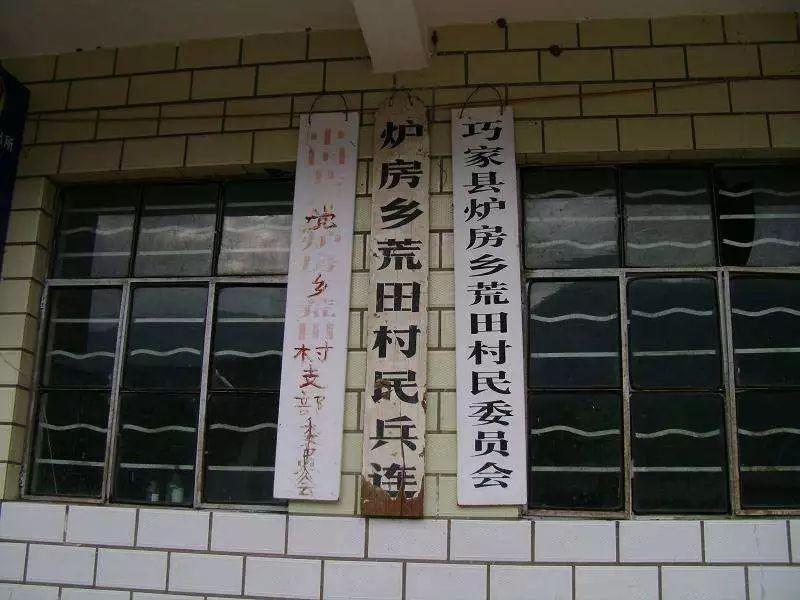 所
党炉房乡荒田村支部委员会
炉房乡荒田村民兵连
巧家县炉房乡荒田村民委员会